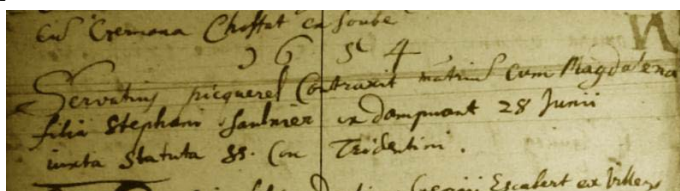 Cremona Choffat ex Soube
Servatius picquerel Contraxit matrim cum Magdalena
filia Stephani Saulnier ex dampuant 28 Junii
iuxta Statuta SS. Con Tridentini.
Escabert ex Villers